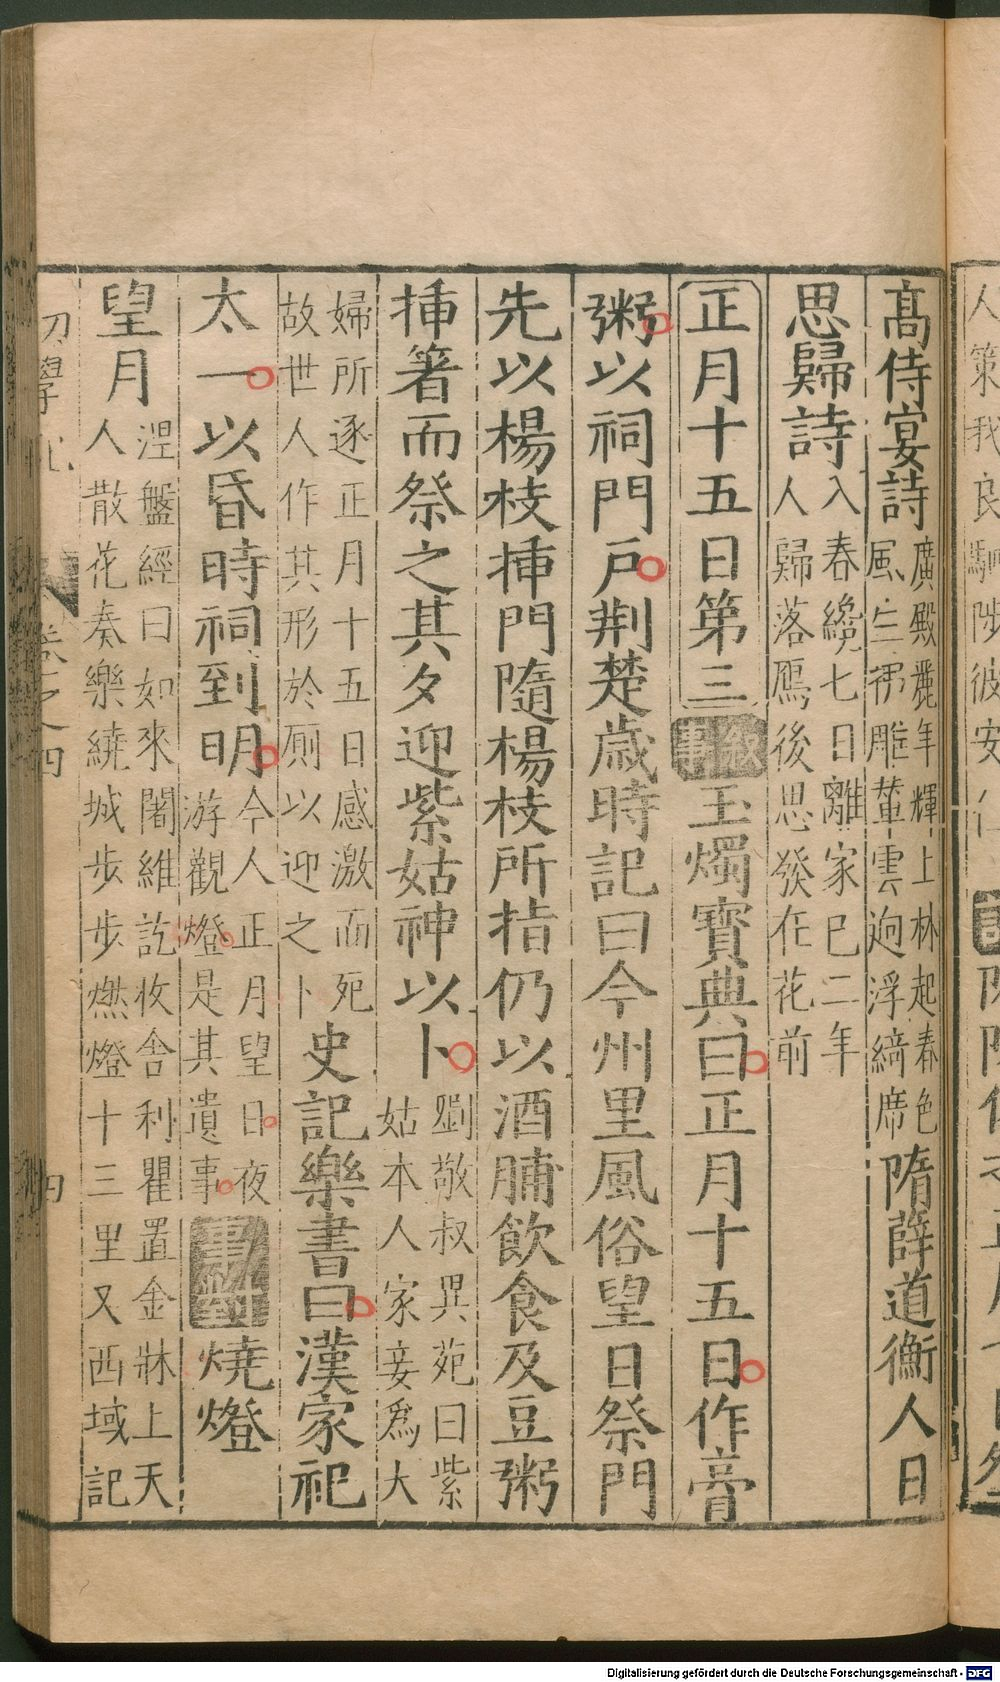 高侍宴詩廣殿麗年輝上林起春色
風生拂雕輦雲迥浮綺席隋薛道衡人日
思歸詩入春纔七日離家已二年
人歸落鴈後思發在花前
正月十五日第三敘事玉燭寶典曰正月十五日作膏
粥以祠門戶荆楚歲時記曰今州里風俗望日祭門
先以楊枝揷門隨楊枝所指仍以酒脯飲食及豆粥
揷箸而祭之其夕迎紫姑神以卜劉敬叔異苑曰紫
姑本人家妾爲大
婦所逐正月十五日感激而死
故世人作其形於厠以迎之卜史記樂書曰漢家祀
太一以昏時祠到明今人正月望日夜
游觀燈是其遺事事對燒燈
望月涅盤經曰如來闍維訖收舍利甖置金牀上天
人散花奏樂繞城步步燃燈十三里又西域記
初學記 卷之四 四
Digitalisierung gefördert durch die Deutsche Forschungsgemeinschaft - DFG